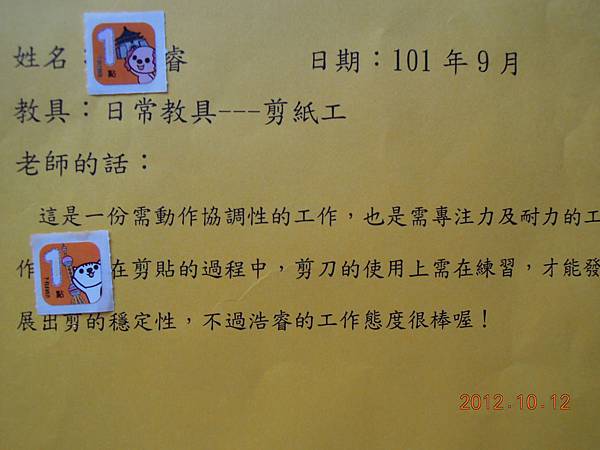 姓名： 睿 日期：101 年 9 月
1
點
教具：日常教具---剪紙工
老師的話：
這是一份需動作協調性的工作，也是需專注力及耐力的工
作 在剪貼的過程中，剪刀的使用上需在練習，才能發
1
點
展出剪的穩定性，不過浩睿的工作態度很棒喔！
2012.10.12